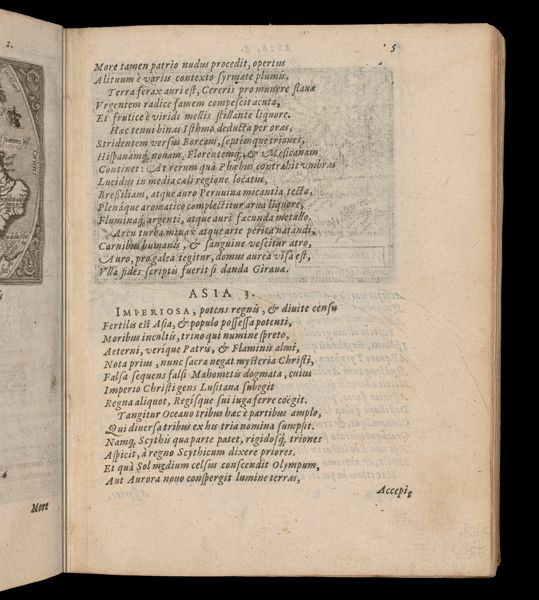 2.
More
5
More tamen patrio nudus procedit, opertus
Alituum è variis contexto syrmate plumis.
Terra ferax auri est, Cereris pro munere flauæ
Vrgentem radice famem compescit acuta,
Et frutice è viridi mellis stillante liquore.
Hæc tenui binas Isthmo deducta per oras,
Stridentem versus Boream, septémque triones,
Hispanamq́; nouam, Florentemq́;, & Mesicanam
Continet: At rerum quà Phœbus contrahit vmbras
Lucidus in media cæli regione locatus,
Bresiliam, atque auro Peruuina micantia tecta,
Plenáque aromatico complectitur arua liquore,
Fluminaq́; argenti, atque auri fœcunda metallo.
Arcu turba minax atque arte perita natandi,
Carnibus humanis, & sanguine vescitur atro,
Auro, pro galea tegitur, domus aurea visa est,
Vlla fides scriptis fuerit si danda Giraua.
ASIA 3.
IMPERIOSA, potens regnis, & diuite censu
Fertilis est Asia, & populo possessa potenti,
Moribus incultis, trino qui numine spreto,
Aeterni, verique Patris, & Flaminis almi,
Nota prius, nunc sacra negat mysteria Christi,
Falsa sequens falsi Mahometis dogmata, cuius
Imperio Christi gens Lusitana subegit
Regna aliquot, Regésque sui iuga ferre coëgit.
Tangitur Oceano tribus hæc è partibus amplo,
Qui diuersa tribus ex his tria nomina sumpsit.
Namq́; Scythis qua parte patet, rigidosq́; triones
Aspicit, à regno Scythicum dixere priores.
Et quà Sol medium celsus conscendit Olympum,
Aut Aurora nouo conspergit lumine terras,
Accepit